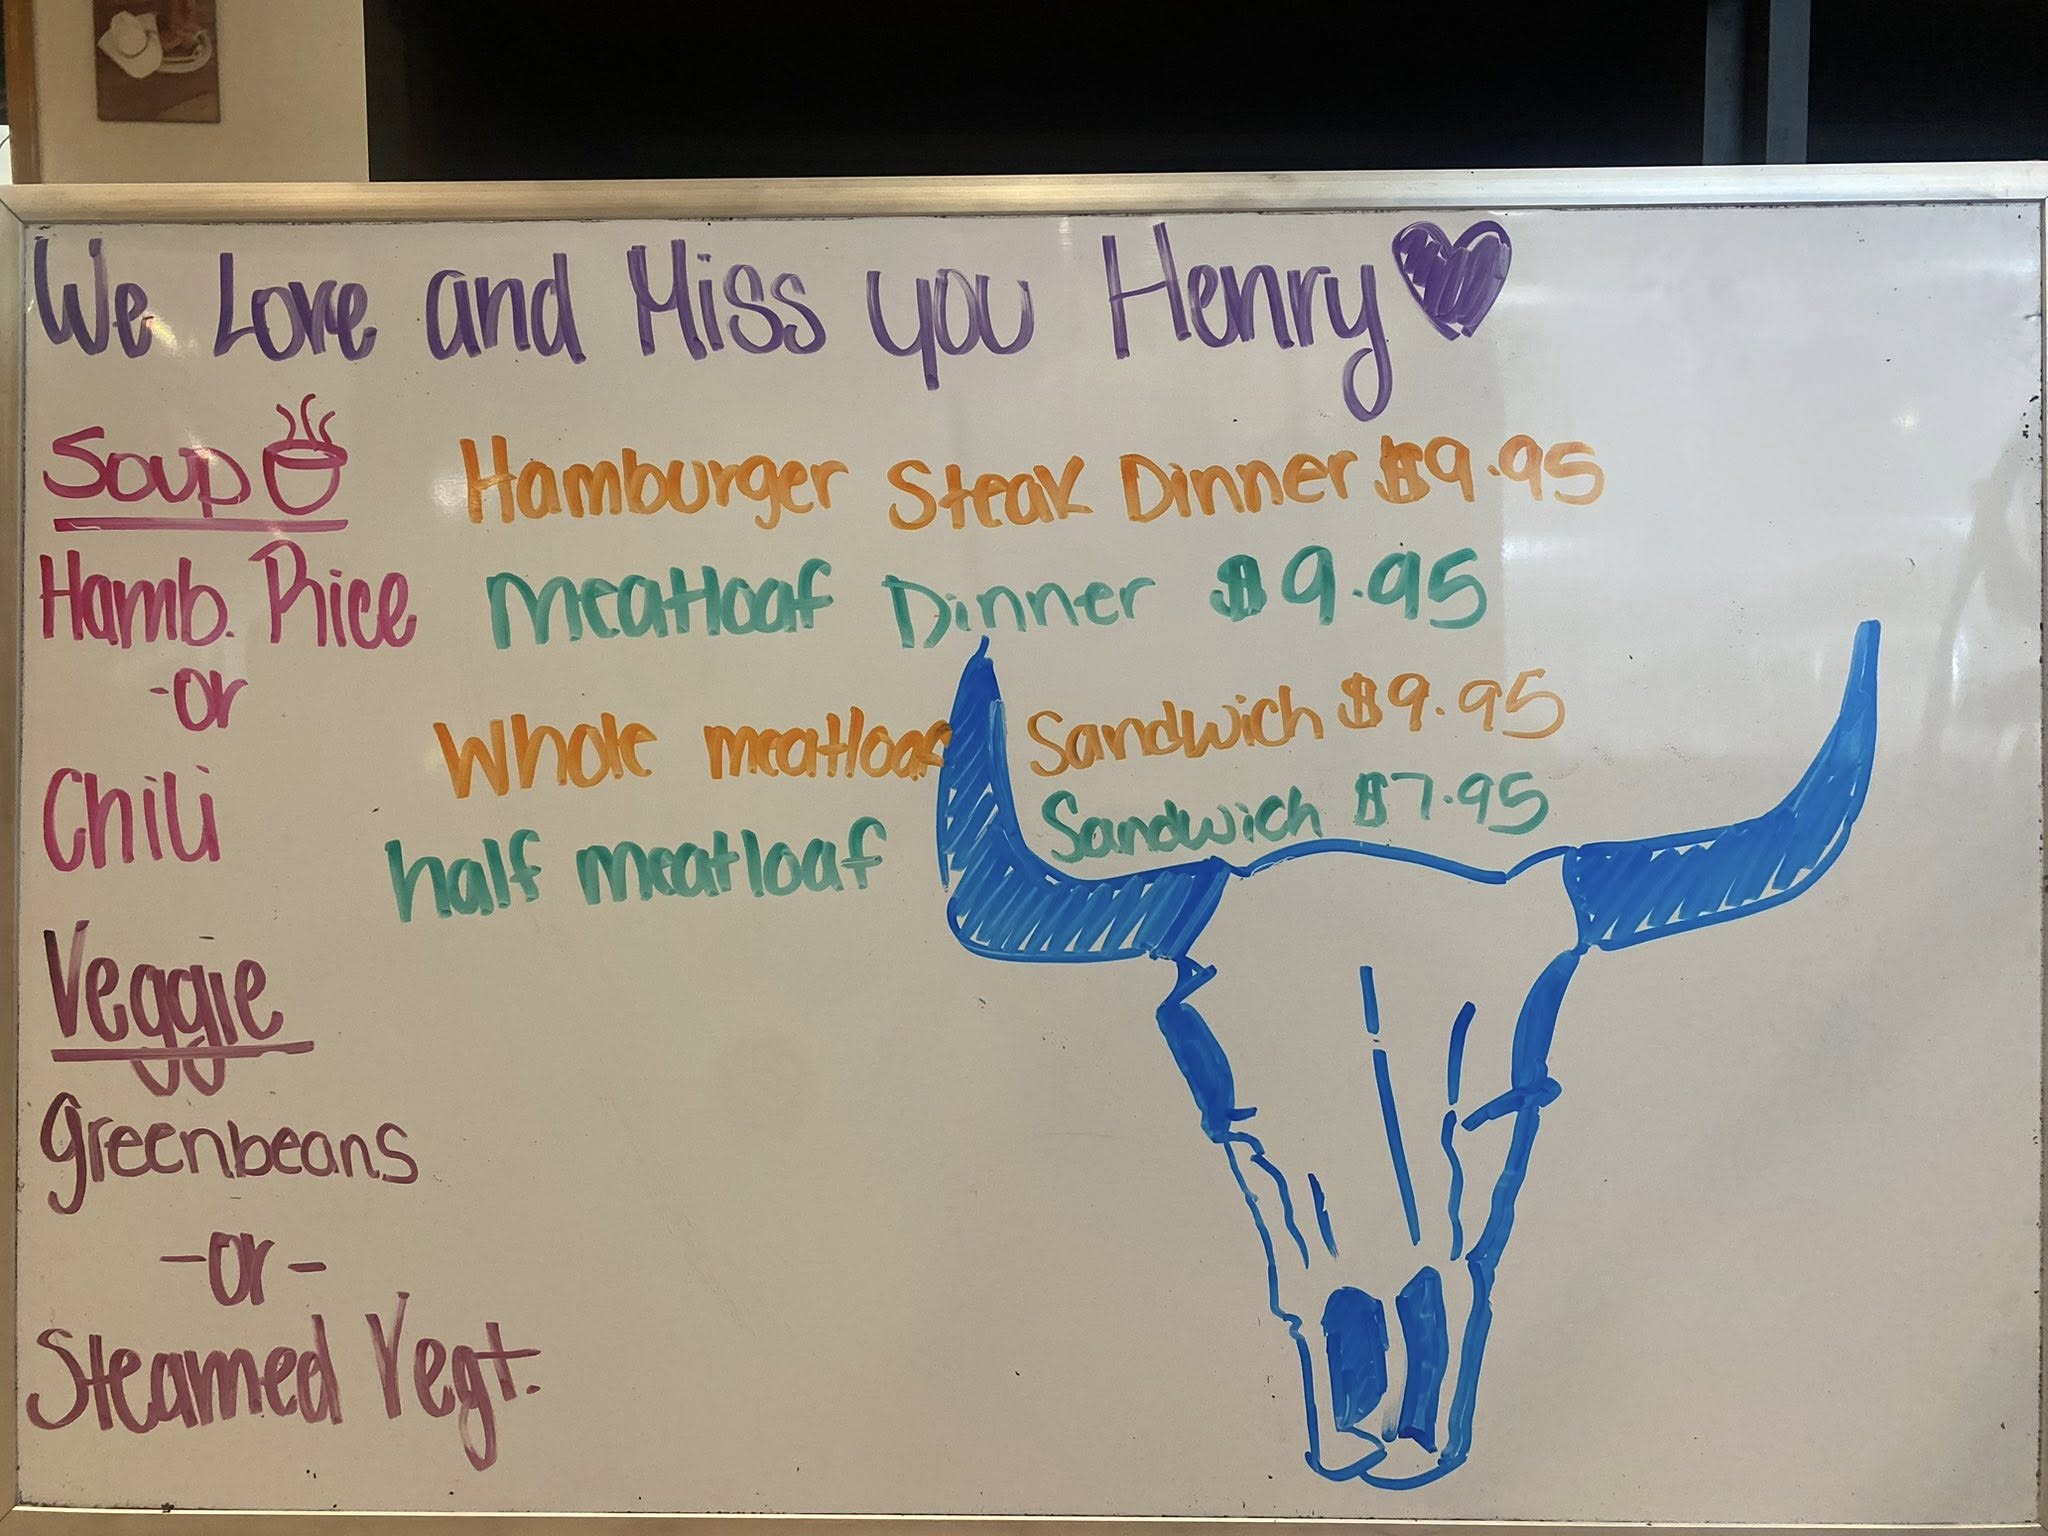 We Love and Miss you Henry
Soup
Hamb. Rice
-or
Chili
Veggie
greenbeans
-or-
Steamed Vegt.
Hamburger Steak Dinner $9.95
Meatloaf Dinner $9.95
Whole meatloaf Sandwich $9.95
half meatloaf Sandwich $7.95